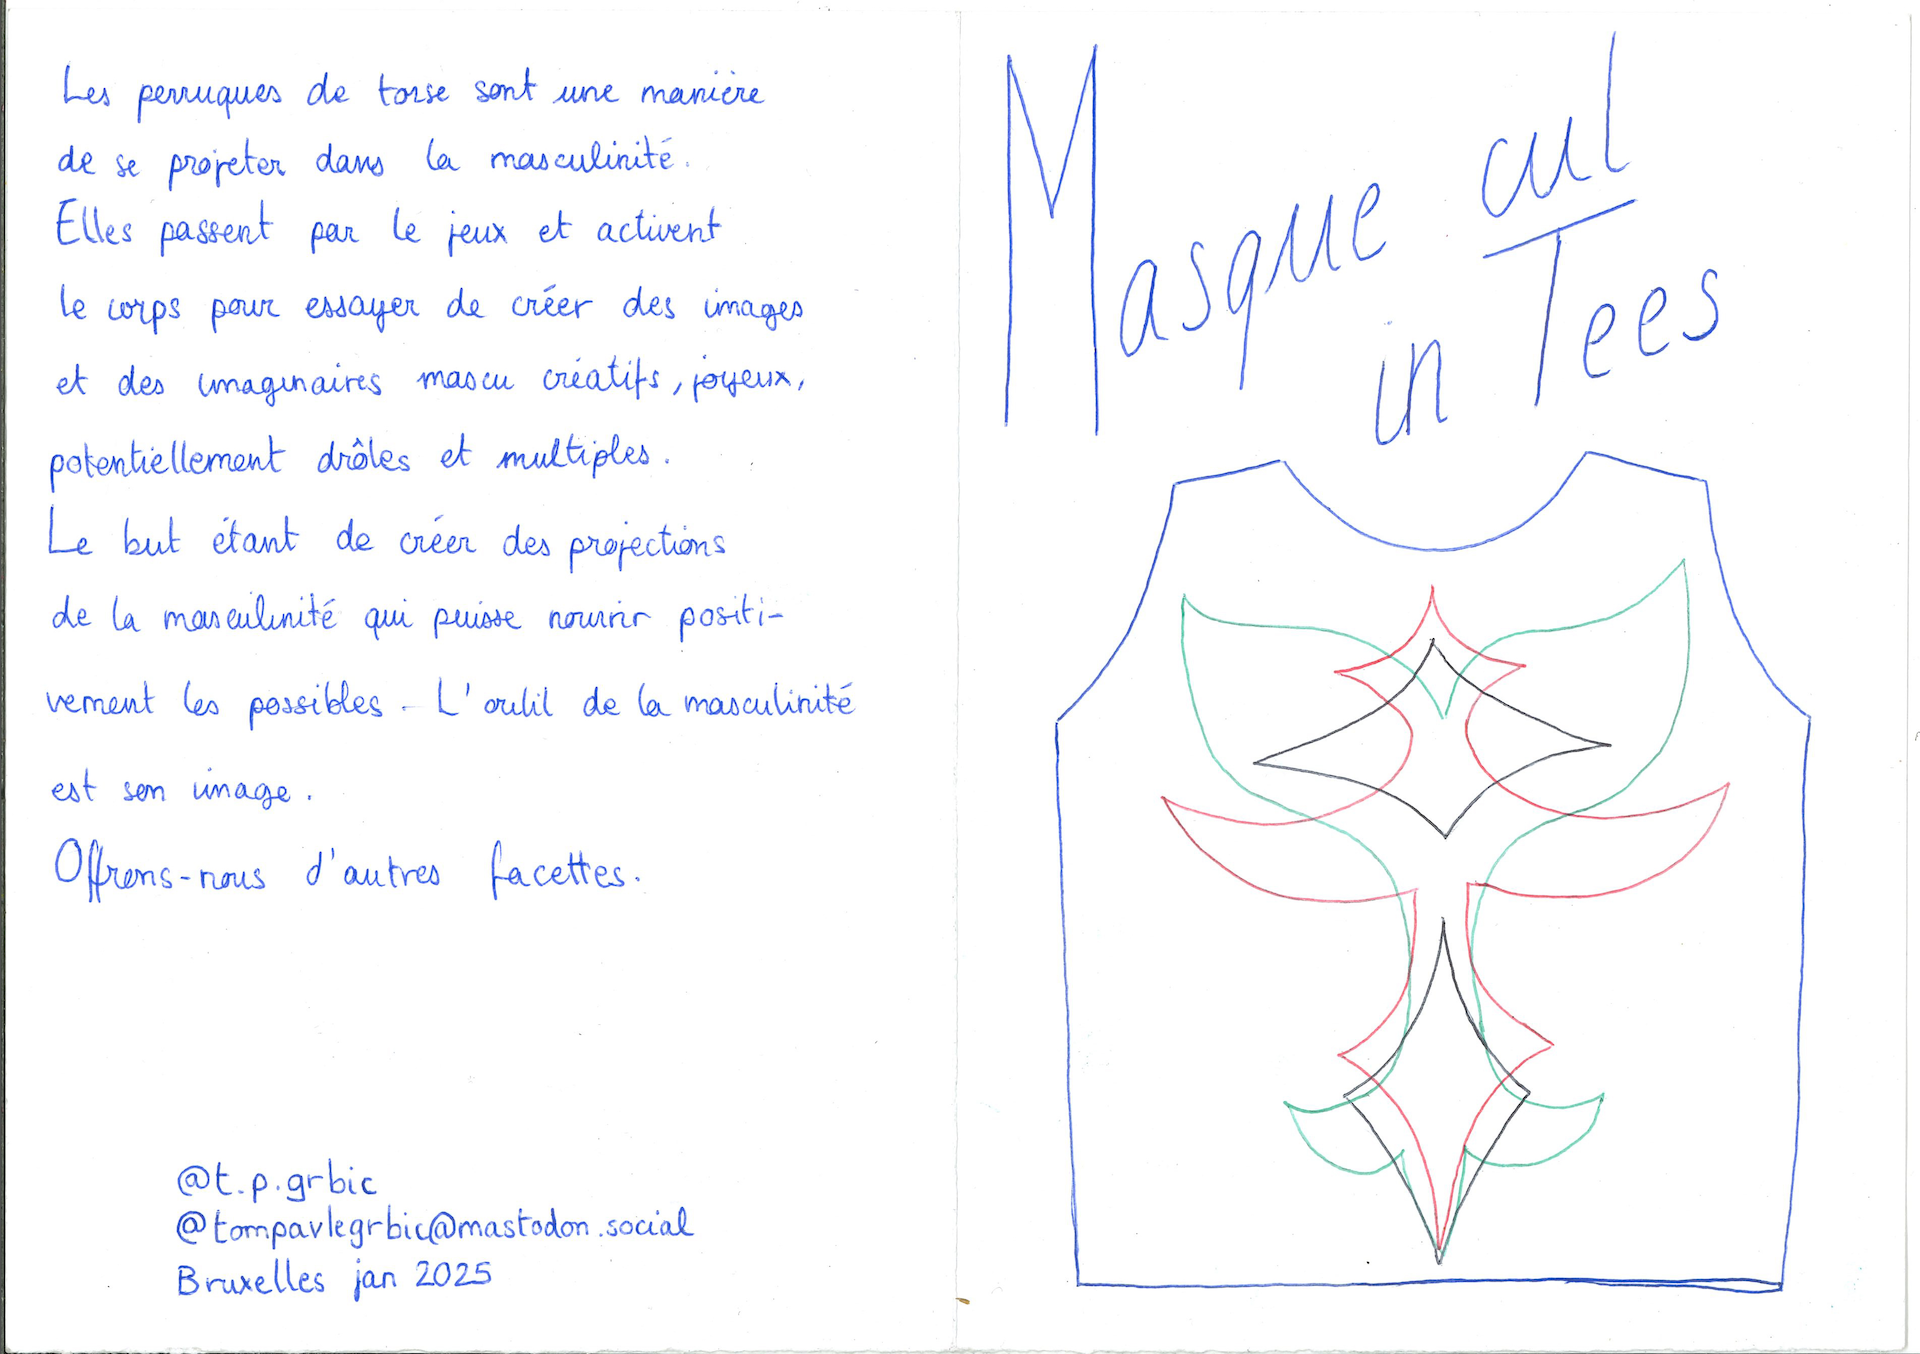 Les perruques de torse sont une manière
de se projeter dans la masculinité.
Elles passent par le jeux et activent
le corps pour essayer de créer des images
et des imaginaires mascu créatifs, joyeux,
potentiellement drôles et multiples.
Le but étant de créer des projections
de la masculinité qui puisse nourrir positi-
vement les possibles. L'outil de la masculinité
est son image.
Offrons-nous d'autres facettes.
@t.p.grbic
@tompavlegrbic@mastodon.social
Bruxelles jan 2025
Masque cul
in Tees